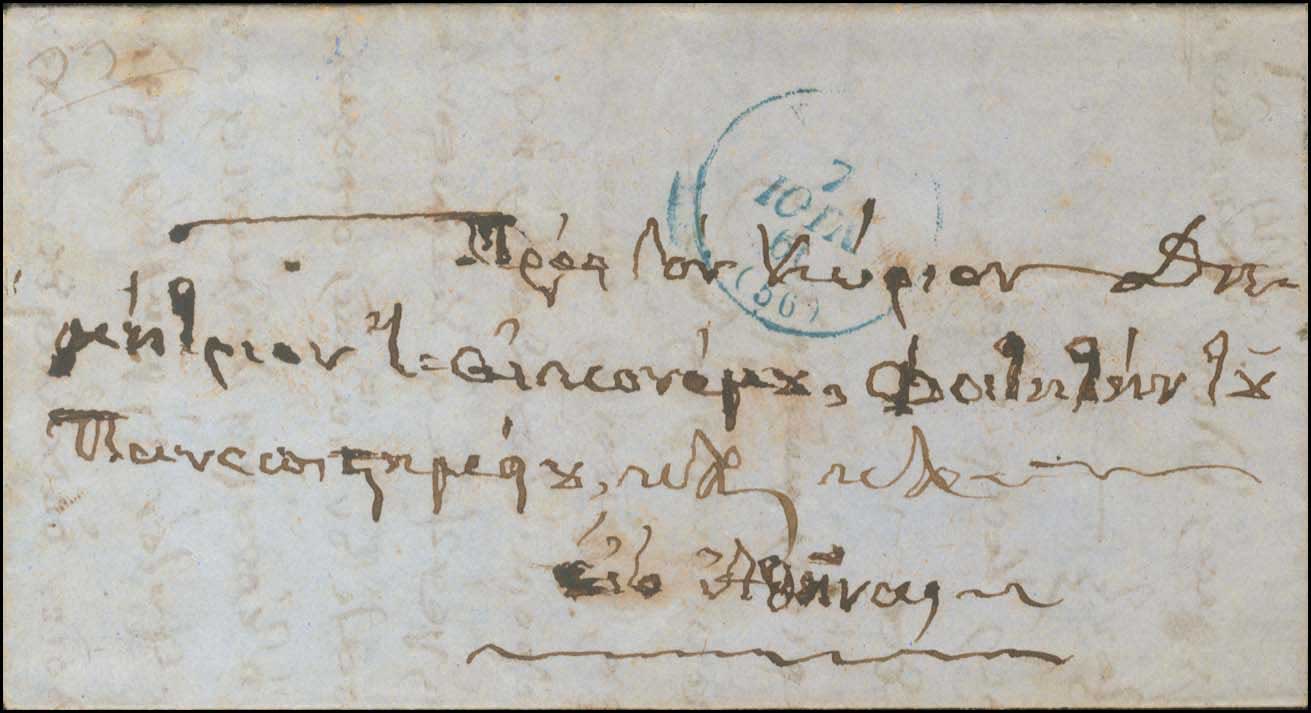 7
ΙΟΥΛ
61
(56)
Πρὸς τὸν Κύριον Δη-
μήτριον Ι. Οἰκονόμου, Φοιτητὴν τοῦ
Πανεπιστημείου, κτλ κτλ
εἰς Ἀθήνας